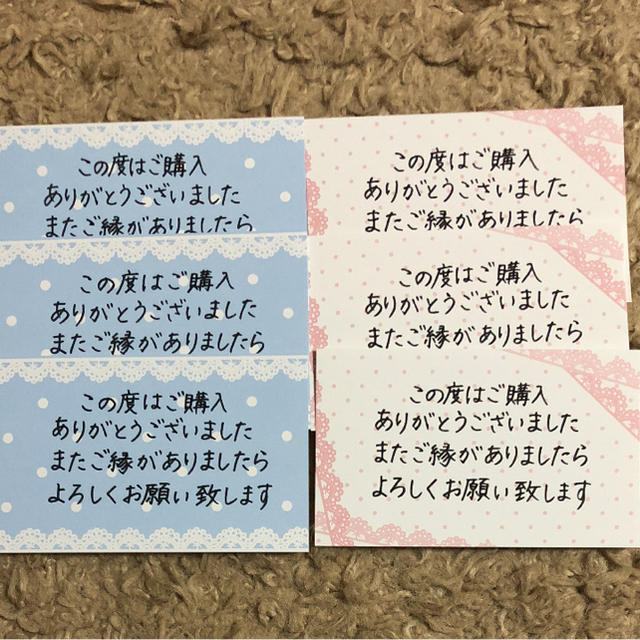 この度はご購入
ありがとうございました
またご縁がありましたら
この度はご購入
ありがとうございました
またご縁がありましたら
この度はご購入
ありがとうございました
またご縁がありましたら
よろしくお願い致します
この度はご購入
ありがとうございました
またご縁がありましたら
この度はご購入
ありがとうございました
またご縁がありましたら
この度はご購入
ありがとうございました
またご縁がありましたら
よろしくお願い致します